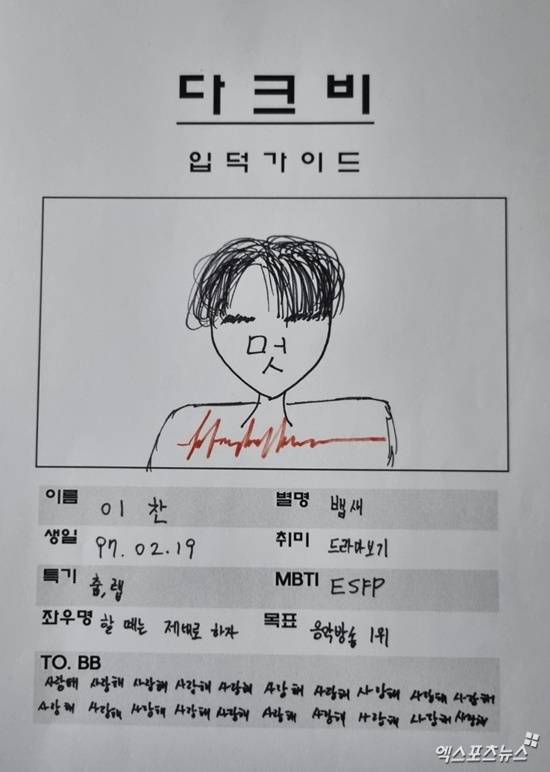 다크비
입덕가이드
멋
이름 이 찬 별명 뱁새
생일 97.02.19 취미 드라마보기
특기 춤, 랩 MBTI ESFP
좌우명 할 때는 제대로 하자 목표 음악방송 1위
TO. BB
사랑해 사랑해 사랑해 사랑해 사랑해 사랑해 사랑해 사랑해 사랑해 사랑해
사랑해 사랑해 사랑해 사랑해 사랑해 사랑해 사랑해 사랑해 사랑해 사랑해
엑스포츠뉴스